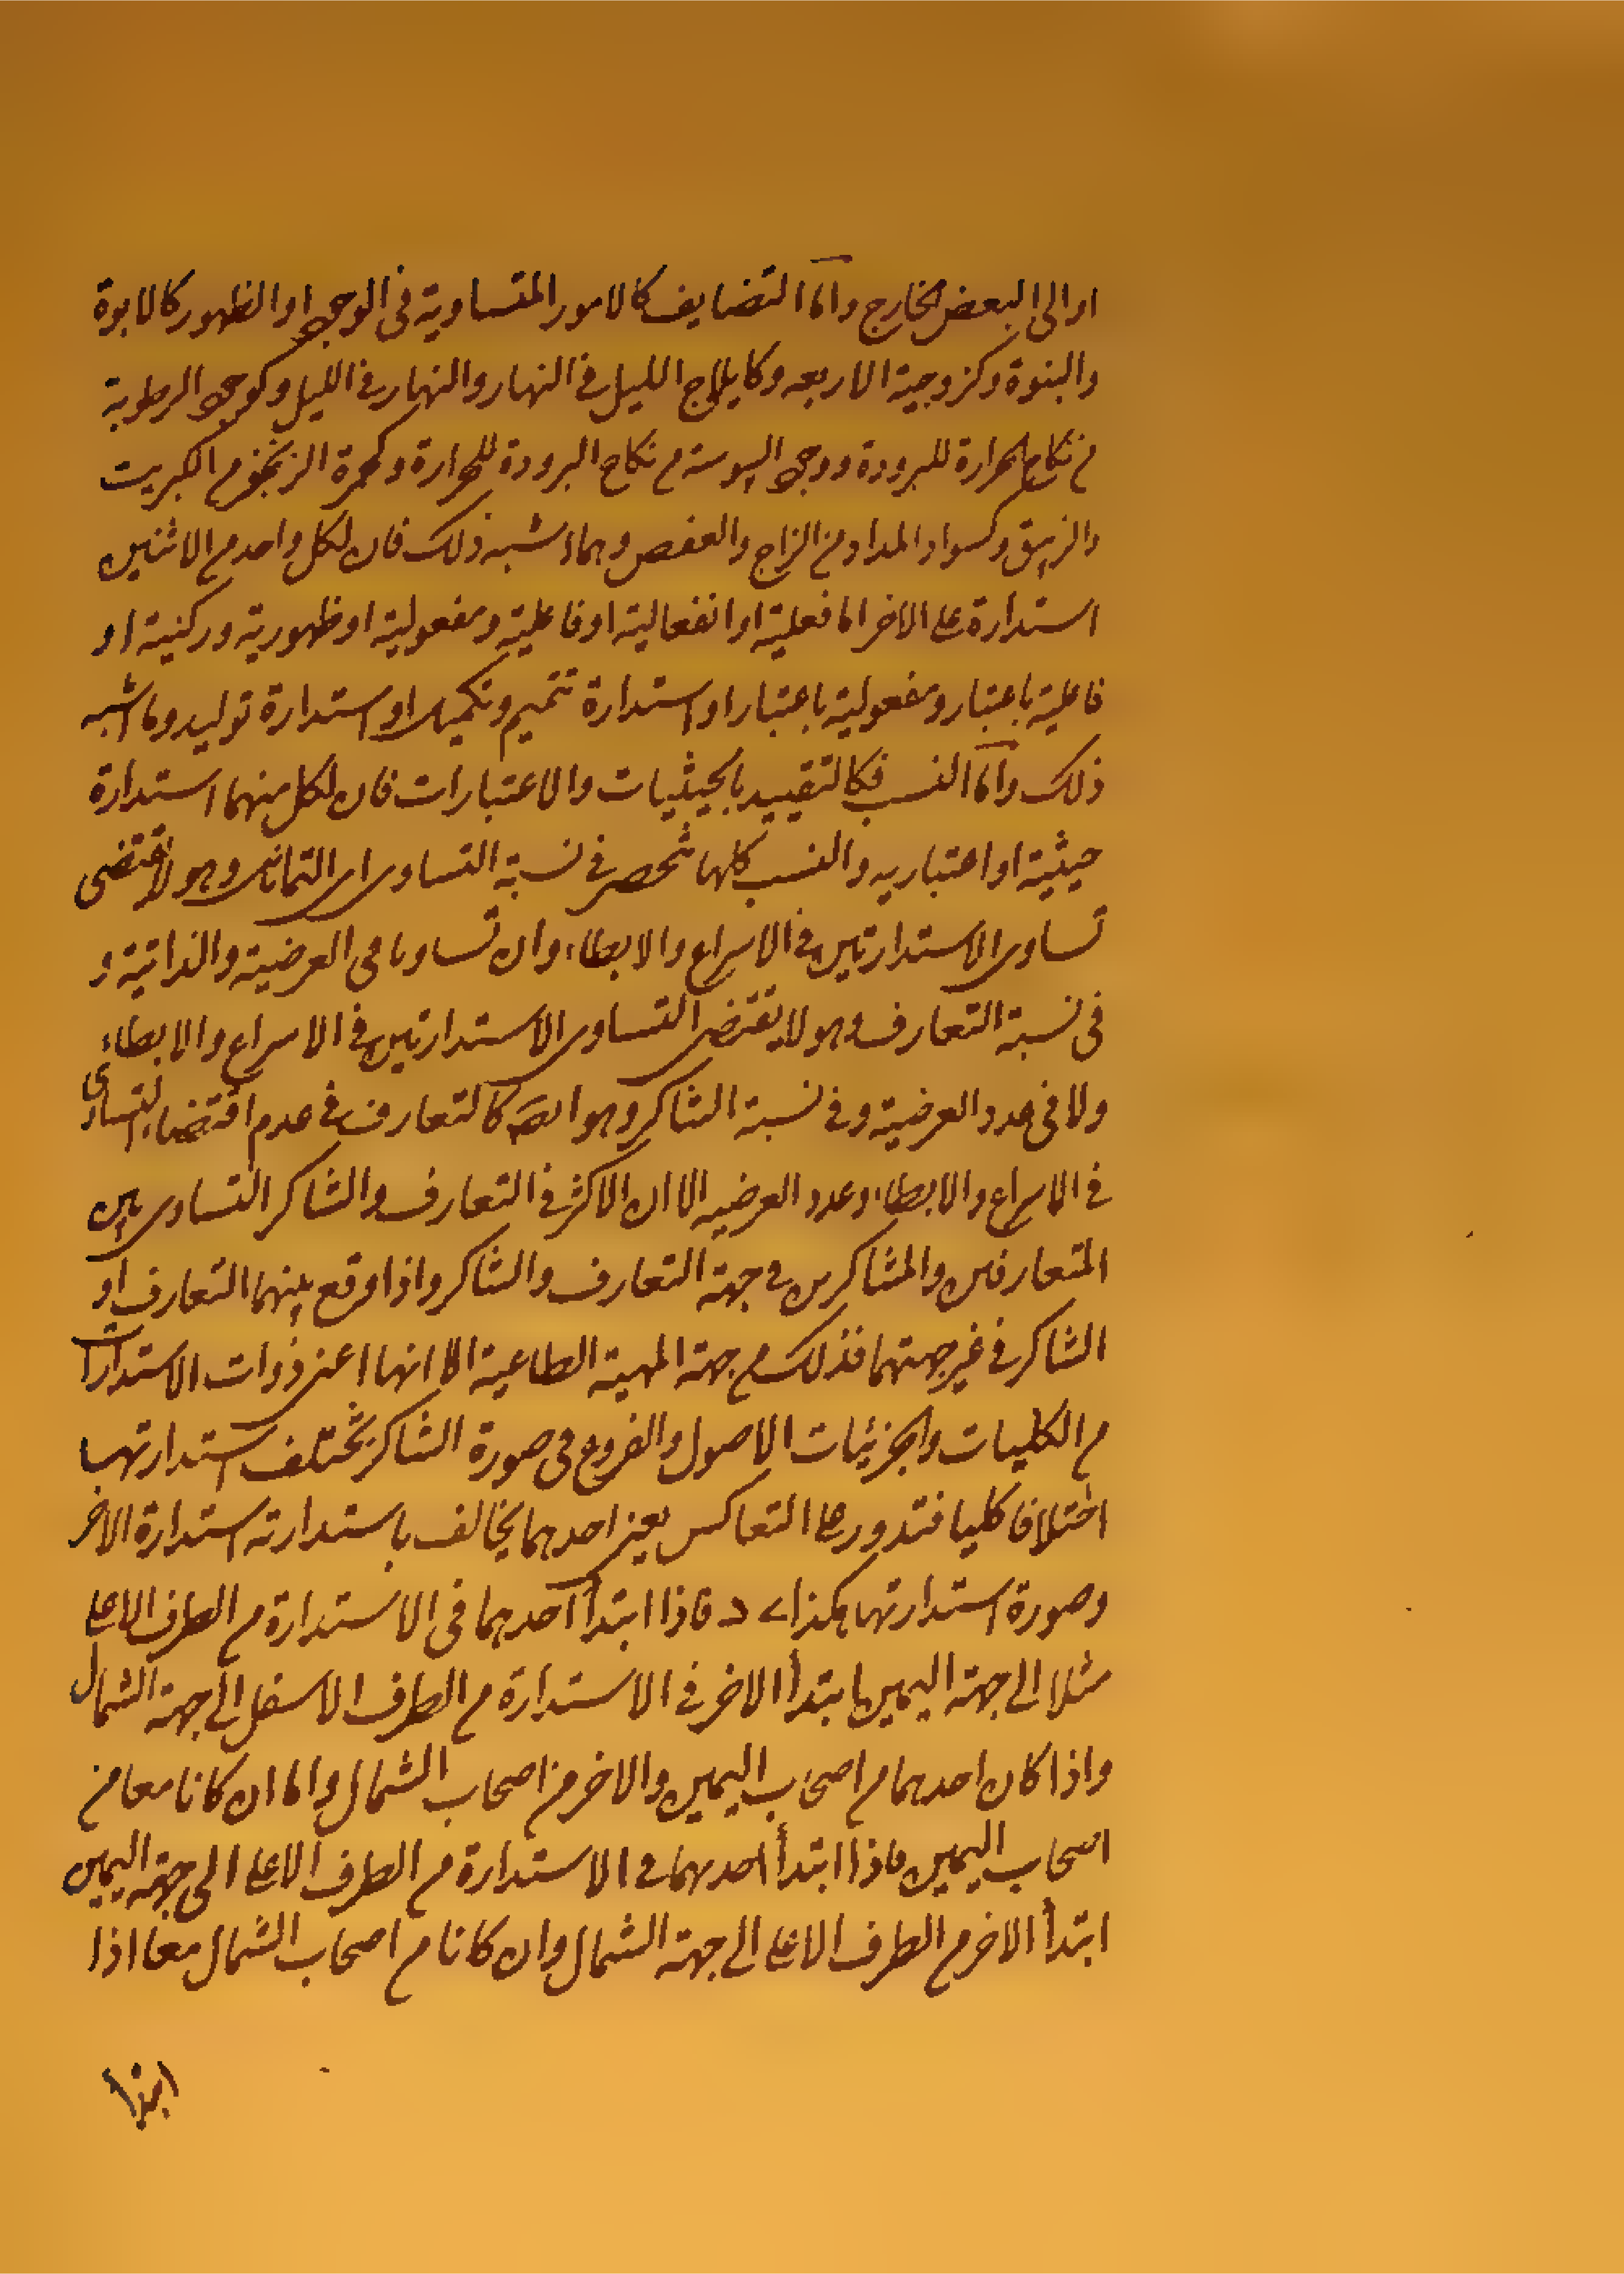 او الى البعض الخارج واما التضايف كالامور المتساوية فى الوجود او الظهور كالابوة
والبنوة وكزوجية الاربعه وكايلاج الليل فى النهار والنهار فى الليل وكوجود الرطوبة
من نكاح الحرارة للبرودة ووجود اليبوسة من نكاح البرودة للحرارة وكحمرة الزنجفر من الكبريت
والزيبق وكسواد المداد من الزاج والعفص وما اشبه ذلك فان لكل واحد من الاثنين
استدارة على الاخر اما فعلية او انفعالية او فاعلية ومفعولية او ظهورية وركنية او
فاعلية باعتبار ومفعولية باعتبار او استدارة تتميم وتكميل او استدارة توليد وما اشبه
ذلك واما النسب فكالتقييد بالحيثيات والاعتبارات فان لكل منهما استدارة
حيثية او اعتباريه والنسب كلها تنحصر فى نسبة التساوى اى التماثل وهو لا يقتضى
تساوى الاستدارتين فى الاسراع والابطاء وان تساويا فى العرضية والذاتية و
فى نسبة التعارف وهو لا يقتضى التساوى الاستدارتين فى الاسراع والابطاء
ولا فى عدد العرضية وفى نسبة التشاكر وهو ايضا كالتعارف فى عدم اقتضاء التساوى
فى الاسراع والابطاء وعدد العرضيه الا ان الاكثر فى التعارف والتشاكر التساوى بين
المتعارفين والمتشاكرين فى جهة التعارف والتشاكر واذا وقع بينهما التعارف او
التشاكر فى غير جهتهما فذلك من جهة المهية الطاعية الا انها اعنى ذوات الاستدارات
من الكليات والجزئيات الاصول والفروع فى صورة التشاكر تختلف استدارتهما
اختلافا كليا فتدور على التعاكس يعنى احدهما يخالف باستدارته استدارة الاخر
وصورة استدارتهما هكذا د فاذا ابتدأ احدهما فى الاستدارة من الطرف الاعلى
مثلا الى جهة اليمين ابتدأ الاخر فى الاستدارة من الطرف الاسفل الى جهة الشمال
واذا كان احدهما من اصحاب اليمين والاخر من اصحاب الشمال واما ان كانا معا من
اصحاب اليمين فاذا ابتدأ احدهما فى الاستدارة من الطرف الاعلى الى جهة اليمين
ابتدأ الاخر من الطرف الاعلى الى جهة الشمال وان كانا من اصحاب الشمال معا اذا
ابتدأ